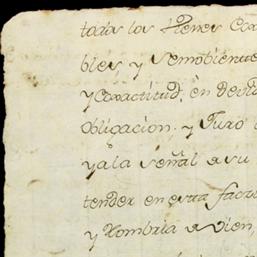 todos los Vienes
bles y Semobiente
y exactitud, en devid
obligacion, y Juro
y ala señal a su
tender en esta factu
y Hombria a vien,